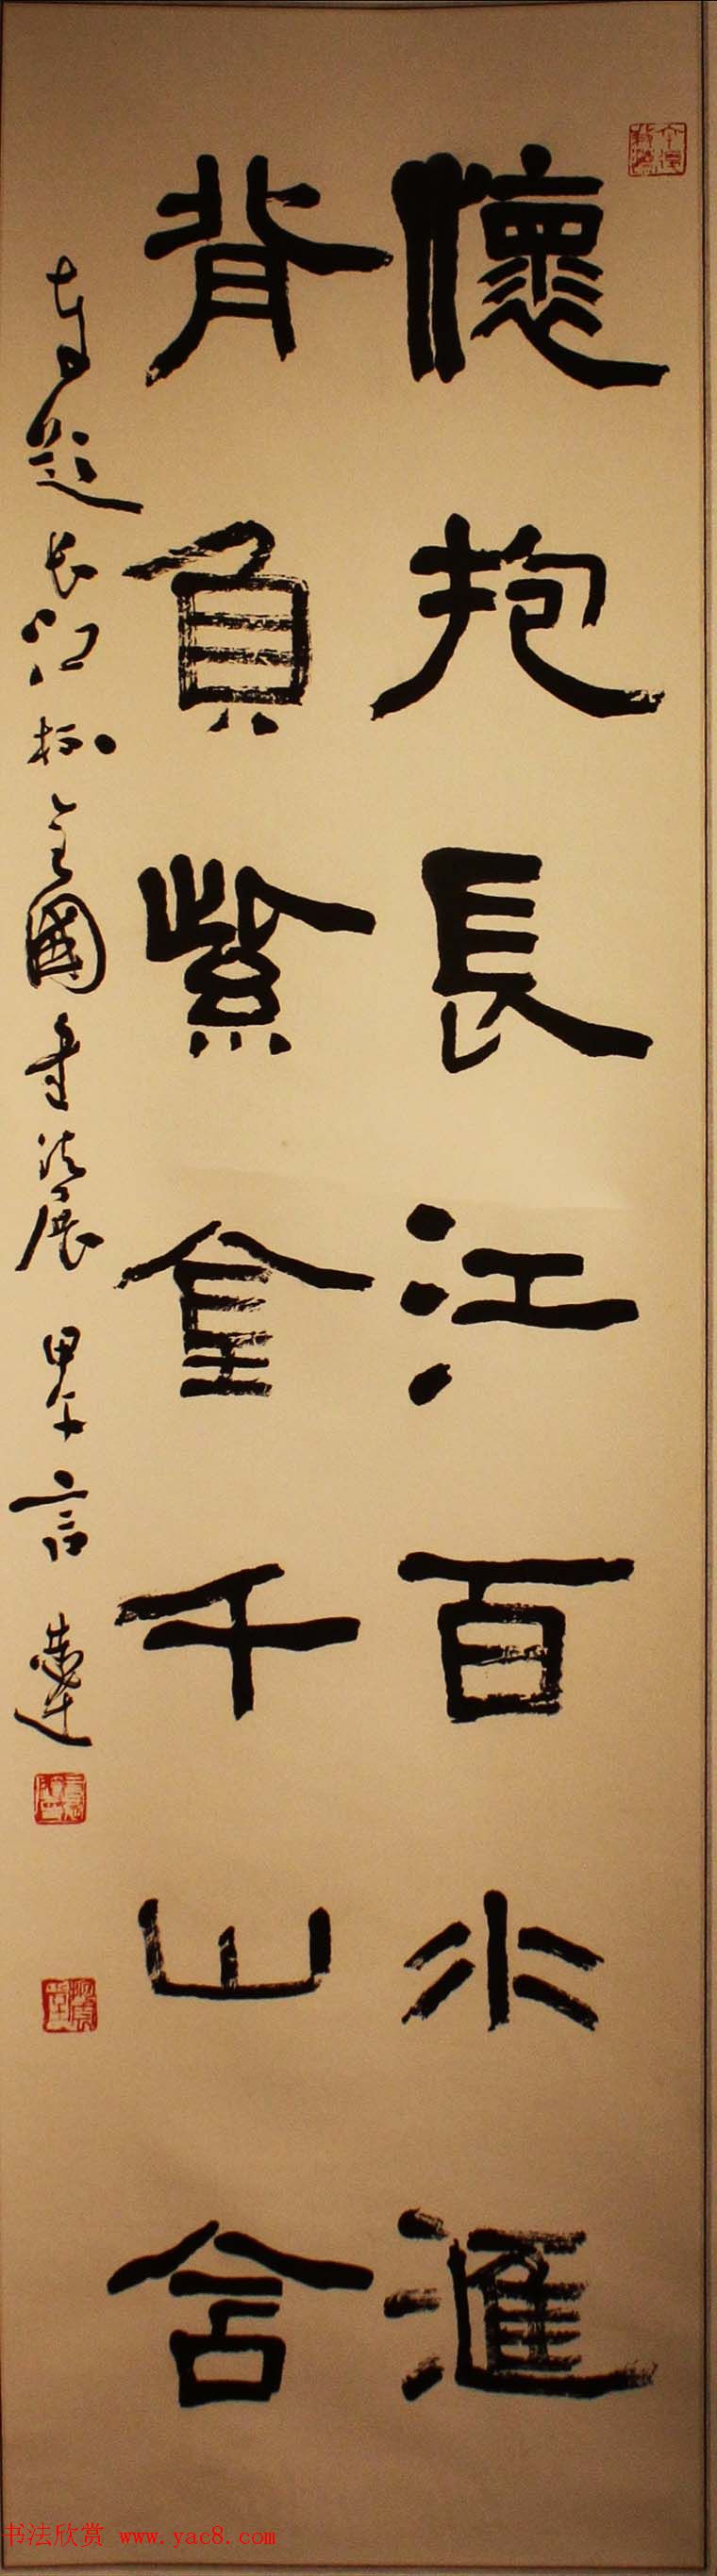 懷抱長江百水滙
背負紫金千山含
專題長江杯全國書法展 甲午 言恭達
书法欣赏 www.yac8.com